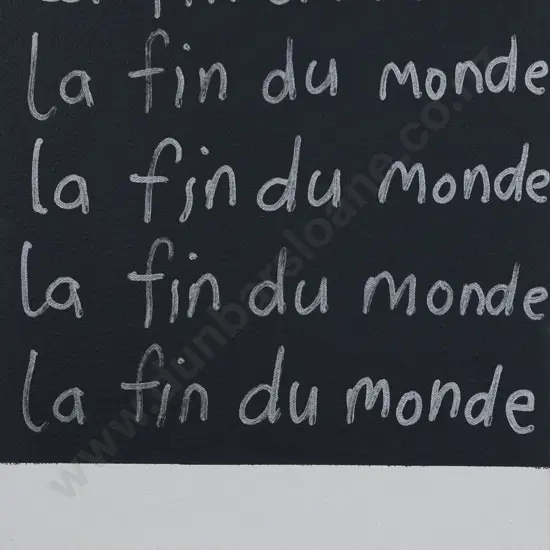 la fin du monde
la fin du monde
la fin du monde
la fin du monde
www.dunbarsloane.co.nz